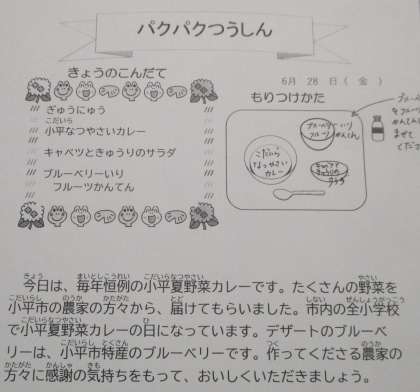 パクパクつうしん
きょうのこんだて
ぎゅうにゅう
こだいら
小平なつやさいカレー
キャベツときゅうりのサラダ
ブルーベリーいり
フルーツかんてん
6月 28 日(金)
もりつけかた
ブルーベリーいり
フルーツかんてん
こだいら
なつやさい
カレー
キャベツと
きゅうりの
サラダ
きょう まいとしこうれい こだいらなつやさい やさい
今日は、毎年恒例の小平夏野菜カレーです。たくさんの野菜を
こだいらし のうか かたがた とど しない ぜんしょうがっこう
小平市の農家の方々から、届けてもらいました。市内の全小学校
こだいらなつやさい ひ
で小平夏野菜カレーの日になっています。デザートのブルーベ
こだいらし とくさん つく のうか
リーは、小平市特産のブルーベリーです。作ってくださる農家の
かたがた かんしゃ きも
方々に感謝の気持ちをもって、おいしくいただきましょう。